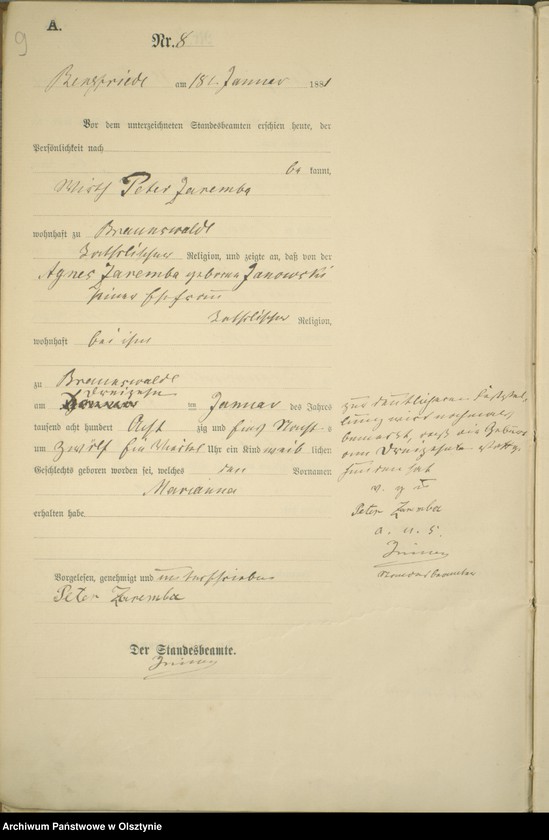 9
A.
Nr. 8
am 18t Januar 1881
Vor dem unterzeichneten Standesbeamten erschien heute, der
Persönlichkeit nach
be kannt,
Wirth Peter Zaremba
wohnhaft zu Braunswalde
katholischer Religion, und zeigte an, daß von der
Agnes Zaremba geborene Janowski
seiner Ehefrau
katholischer Religion,
wohnhaft bei ihm
zu Braunswalde
dreizehn
am Januar des Jahres
tausend acht hundert Acht zig und eins Nachts
um zwölf ein Viertel Uhr ein Kind weib lichen
Geschlechts geboren worden sei, welches den Vornamen
Marianna
erhalten habe.
zur deutlicheren Feststel-
lung wird nochmals
bemerkt, daß die Geburt
am dreizehn stattge-
funden hat
v. g. u.
Peter Zaremba
a. u. s.
Standesbeamter
Vorgelesen, genehmigt und unterschrieben
Peter Zaremba
Der Standesbeamte.
Archiwum Państwowe w Olsztynie